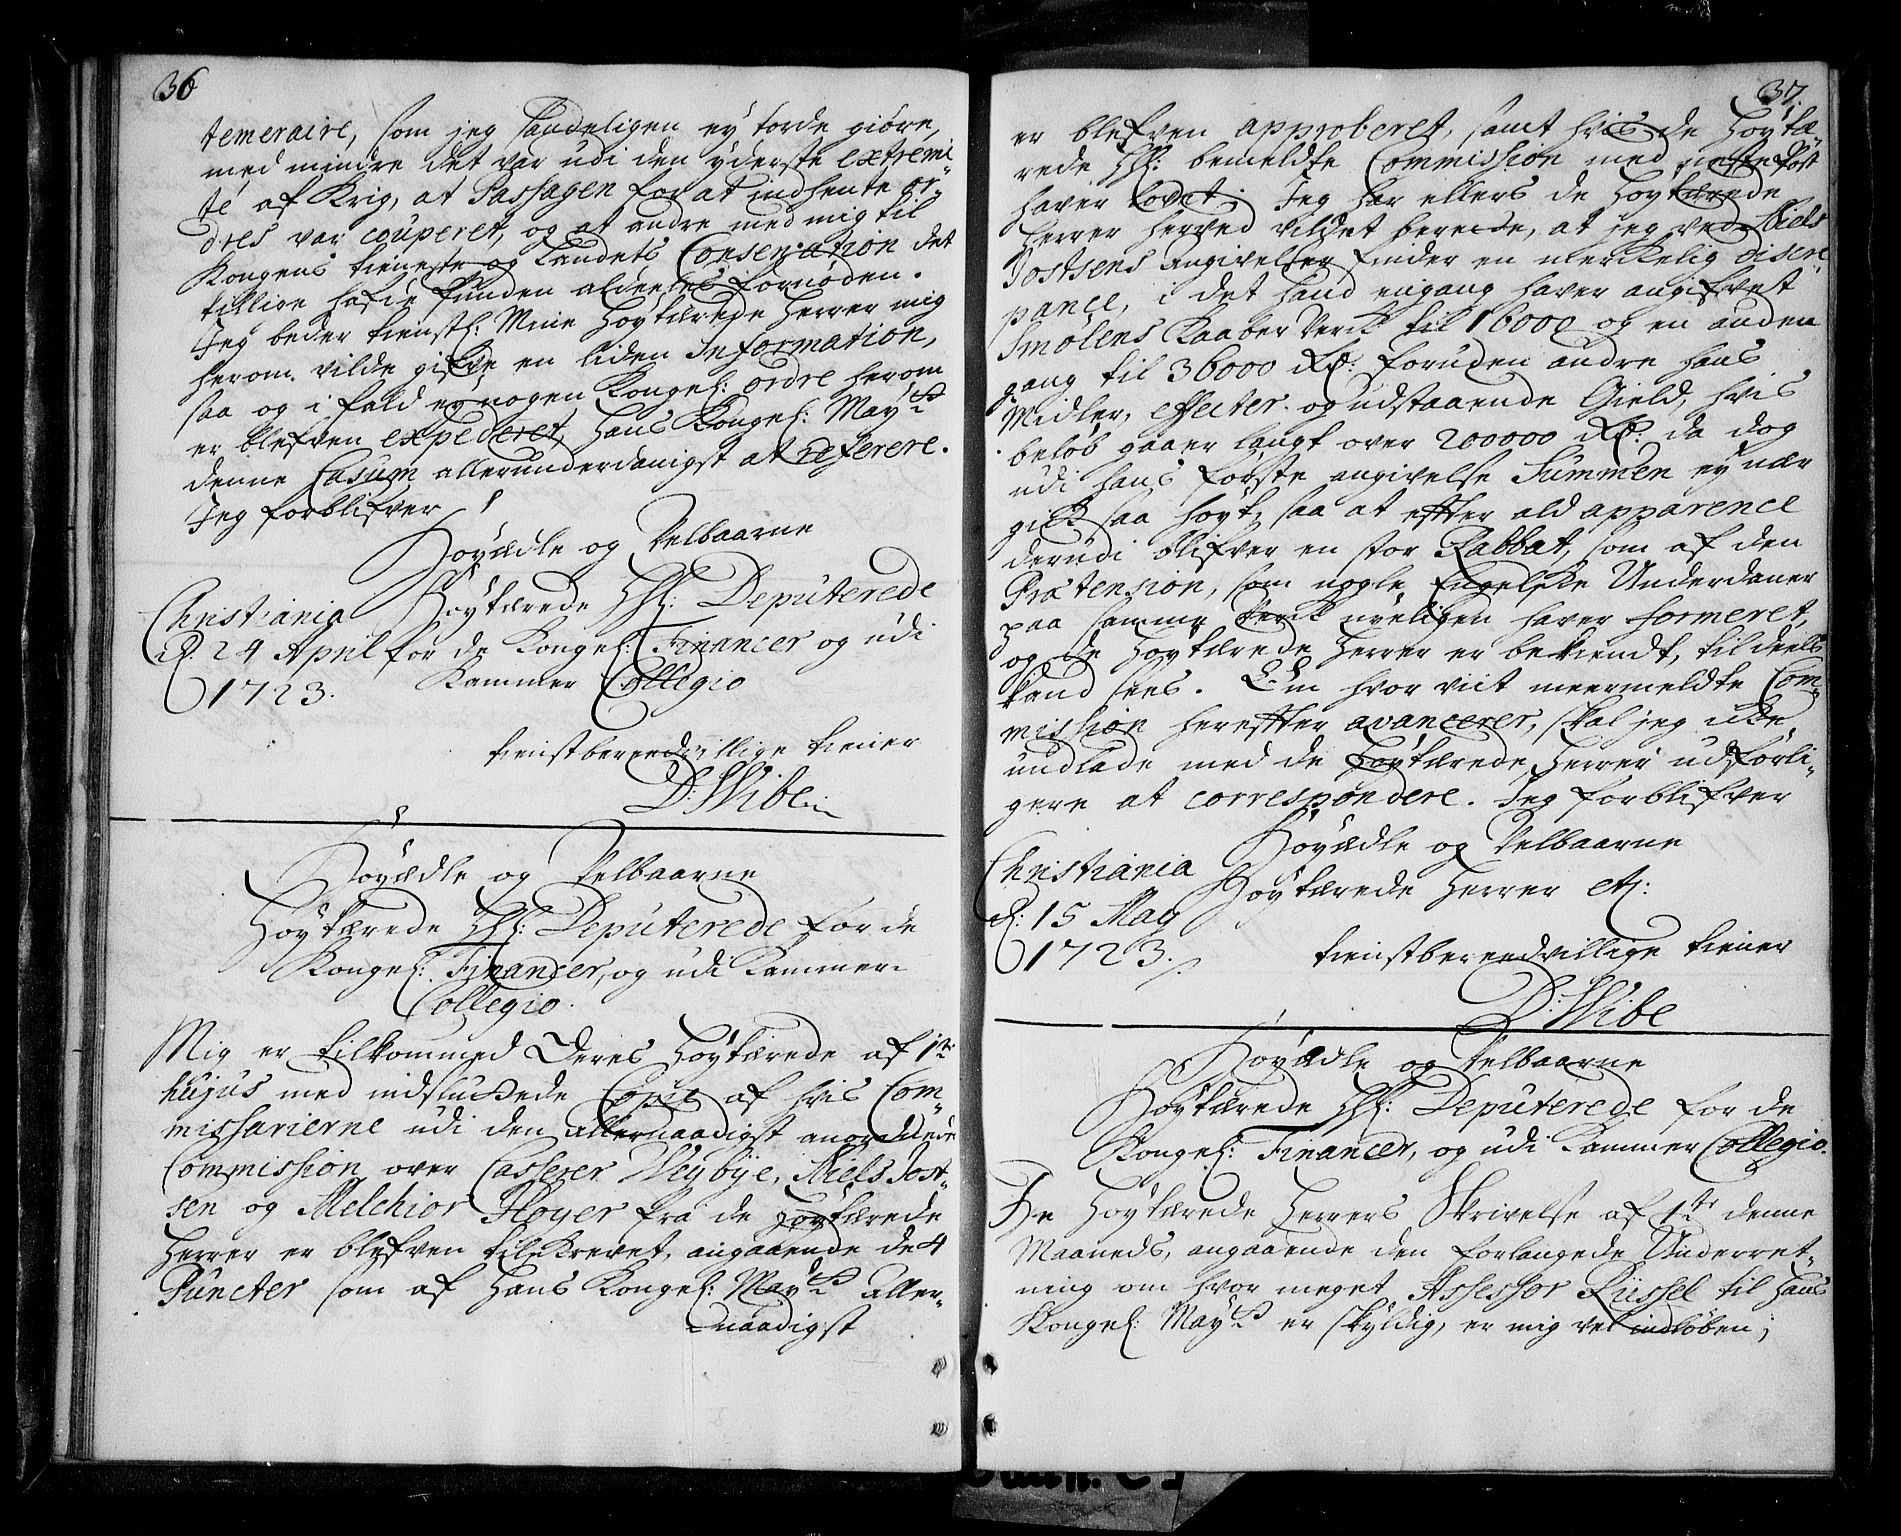 36
temeraire, som jeg sandeligen ey torde giöre,
med mindre det var udi den yderste extremi-
té af Krig, at Passagen for at indhente or-
dres var couperet, og at andre med mig til
Kongens tieneste og Landets Conservation det
tillige hafde funden aldeeles fornøden.
Jeg beder tienstl: Mine Høytærede Herrer mig
herom vilde gifve en liden Information,
saa og i fald ey nogen Kongel: ordre herom
er blefven expederet, Hans Kongel: Mayts
denne Casum allerunderdanigst at referere.
Jeg forblifver
Høyædle og Velbaarne
Christiania Høytærede HH: Deputerede
d. 24 April for de Kongel: Financer og udi
1723. Kammer Collegio
tienstbereedvillige tiener
D: Wibe
Høyædle og Velbaarne
Høytærede HH: Deputerede for de
Kongel: Financer, og udi Kammer-
Collegio.
Mig er tilkommed Deres Høytærede af 1te
hujus med indsluttede Copie af hvis Com-
missarierne udi den allernaadigst anordnede
Commission over Casserer Weybye, Niels Jost-
sen og Melchior Høyer fra de Høytærede
Herrer er blefven tilskrevet, angaaende de 4
Puncter som af Hans Kongel: Mayts aller-
naadigst
37.
er blefven approberet, samt hvis de Høytæ-
rede HH: bemeldte Commission med neste Post
haver lovet. Jeg har ellers de Høytærede
Herrer herved vildet berette, at jeg ved Niels
Jostsens angivelser finder en merkelig discre-
pance, i det hand engang haver angifvet
Smølens Kaaber Verk til 16000 og en anden
gang til 36000 Rd: foruden andre hans
Midler, effecter og udstaaende Gield, hvis
beløb gaaer langt over 200000 Rd. da dog
udi hans første angivelse Summen ey nær
gick saa høyt, saa at efter ald apparence
derudi blifver en stor Rabbat, som af den
Prætension, som nogle Engelske Underdaner
paa samme Verk nyeligen haver formeret,
og de Høytærede Herrer er bekiendt, til deels
kand sees. Om hvor vit meermeldte Com-
mission herefter avancerer, skal jeg icke
undlade med de Høytærede Herrer udførli-
gere at correspondere. Jeg forblifver
Høyædle og Velbaarne
Christiania Høytærede Herrer etc:
d: 15 May
1723. tienstbereedvillige tiener
D: Wibe
Høyædle og Velbaarne
Høytærede HH: Deputerede for de
Kongel: Financer, og udi Kammer Collegio.
De Høytærede Herrers Skrivelse af 1te denne
Maaneds, angaaende den forlangede Underret-
ning om hvor meget Assessor Rüssel til Hans
Kongel: Mayts er skyldig, er mig vel indløben;